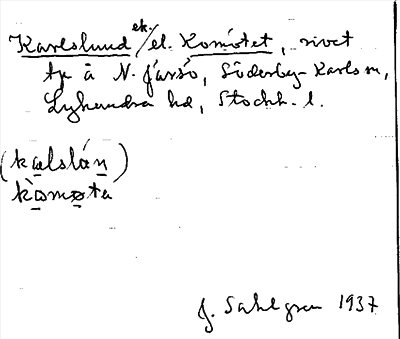 Karlslund ek. / el. Komötet, rivet
tp å N. Järsö, Söderby-Karls sn,
Lyhundra hd, Stockh. l.
(kalslán)
kòmøta
J. Sahlgren 1937